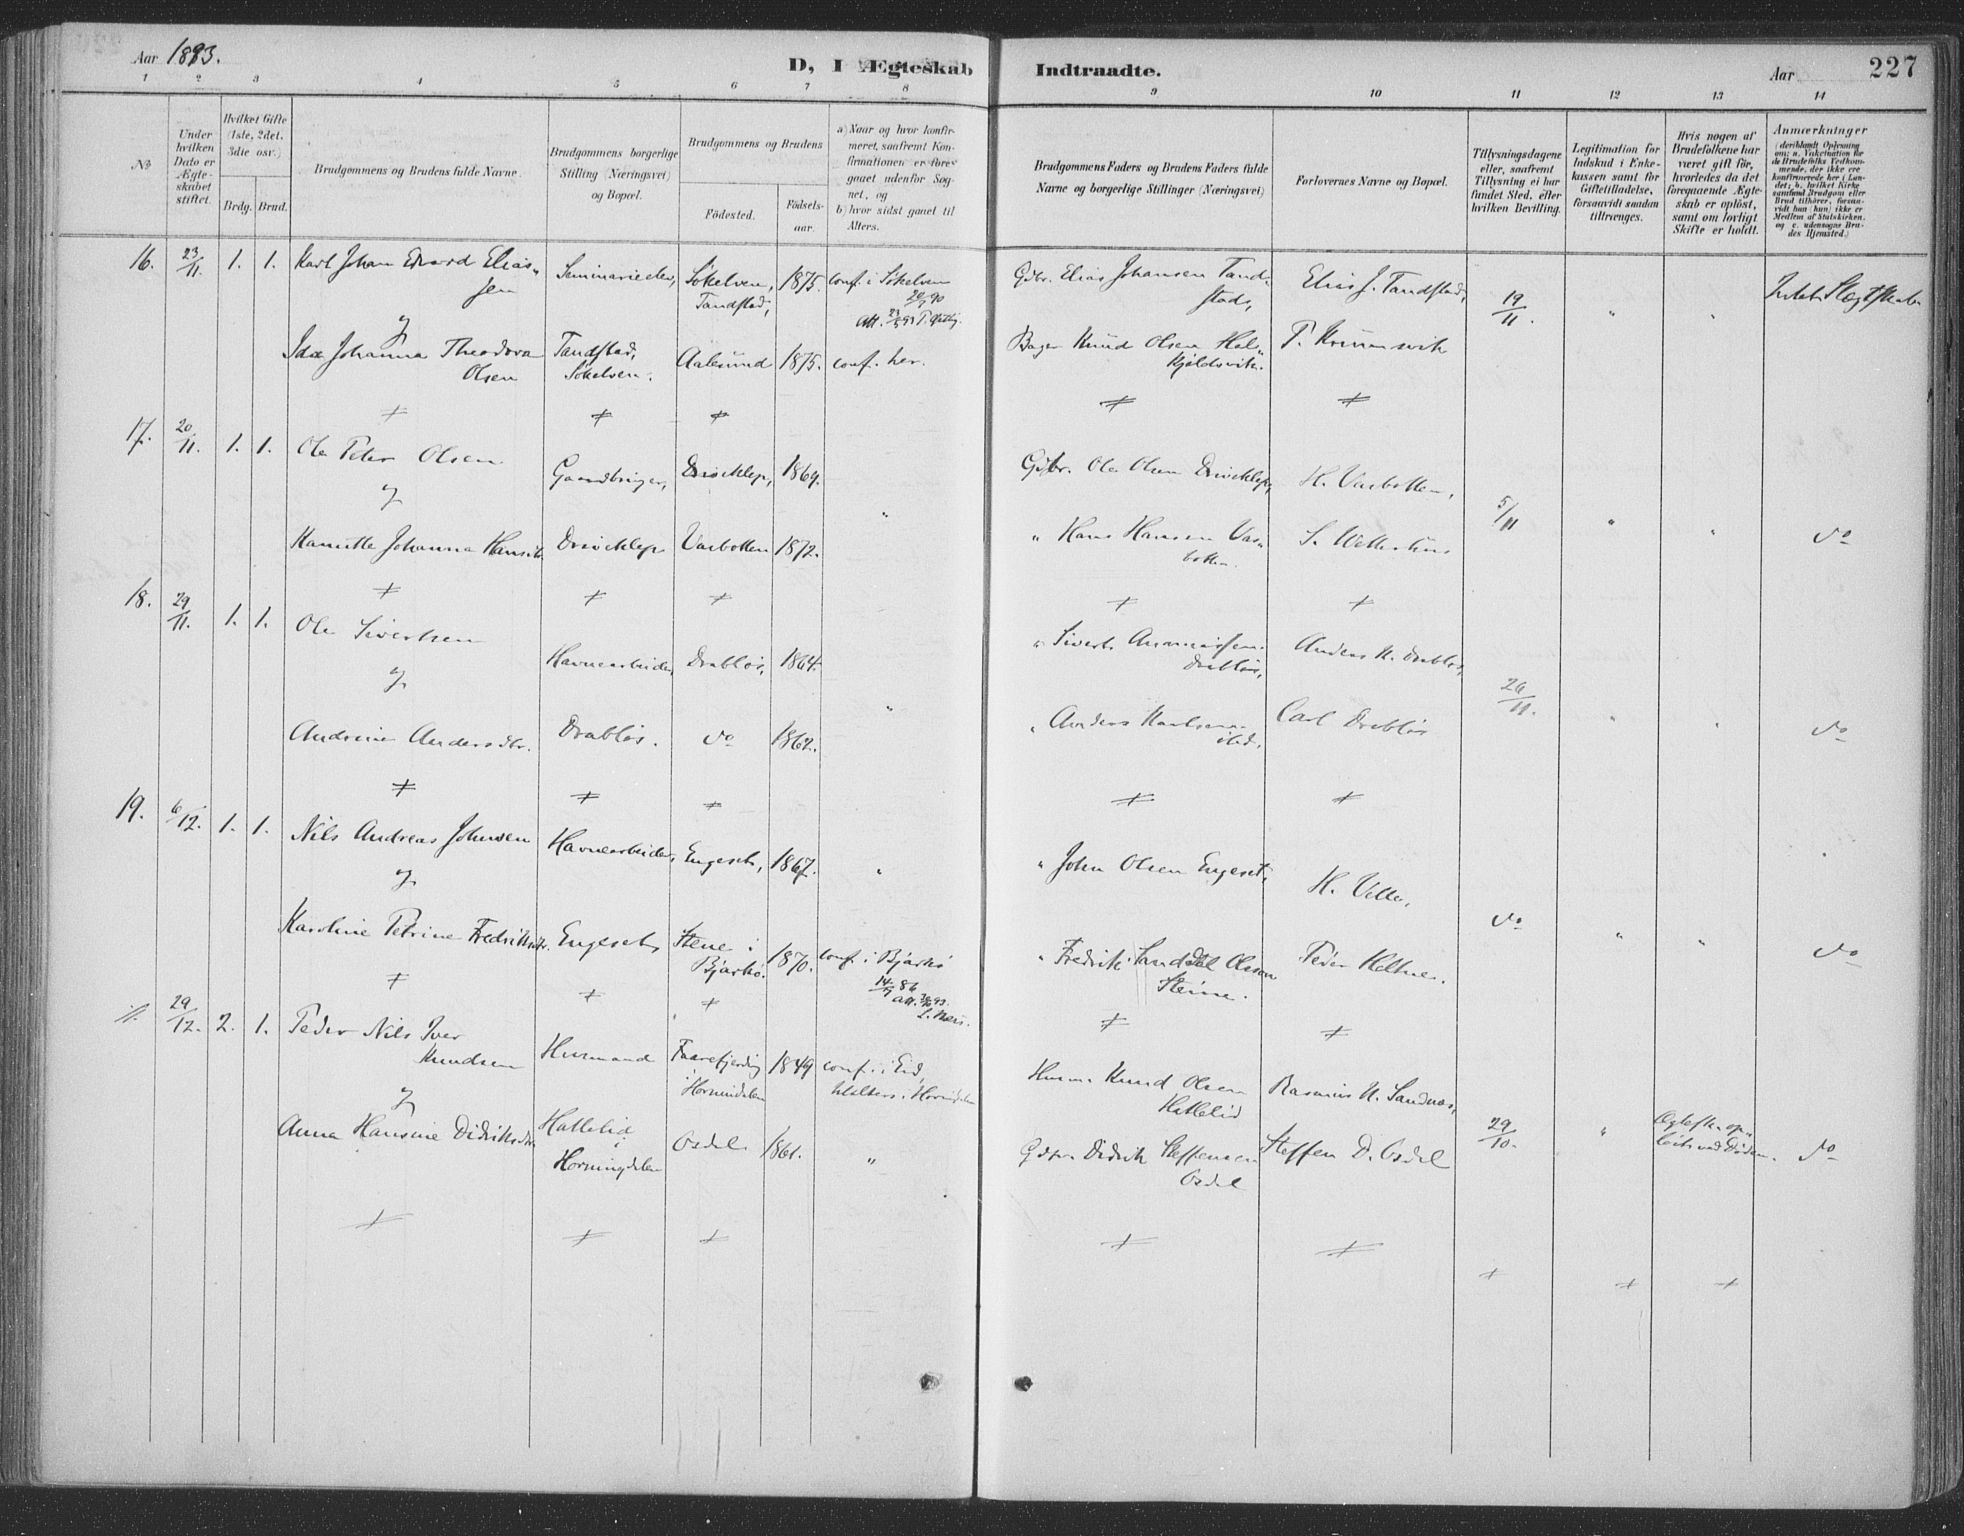 Aar 1893.
D, I Ægteskab Indtraadte.
Aar
227
1 2 3 4 5 6 7 8 9 10 11 12 13 14
No
Under hvilken Dato er Ægteskabet stiftet.
Hvilket Gifte (1ste, 2det, 3die osv.)
Brdg. Brud.
Brudgommens og Brudens fulde Navne.
Brudgommens borgerlige Stilling (Næringsvei) og Bopæl.
Brudgommens og Brudens
Fødested.
Fødselsaar.
a) Naar og hvor konfirmeret, saafremt Konfirmationen er foregaaet udenfor Sognet, og
b) hvor sidst gaaet til Alters.
Brudgommens Faders og Brudens Faders fulde Navne og borgerlige Stillinger (Næringsvei)
Forlovernes Navne og Bopæl.
Tillysningsdagene eller, saafremt Tillysning ei har fundet Sted, efter hvilken Bevilling.
Legitimation for Indskud i Enkekassen samt for Giftetilladelse, forsaavidt saadan tiltrenges.
Hvis nogen af Brudefolkene har været gift før, hvorledes da det foregaaende Ægteskab er opløst, samt om lovligt Skifte er holdt.
Anmærkninger
(deriblandt Oplysning om: a. Vakcination for de Brudefolks Vedkommende, der ikke ere konfirmerede her i Landet; b. hvilket Kirkesamfund Brudgom eller Brud tilhører, forsaavidt han (hun) ikke er Medlem af Statskirken, og c. udensogns Brudes Hjemsted.)
16. 23/11. 1. 1. Karl Johan Edvard Eliassen Seminarieelev, Søkelven, Tandstad, 1875. conf. i Søkelven
Gdbr. Elias Johansen Tandstad, Elias J. Tandstad, 19/11. " "
og
Ida Johanna Theodora Olsen Tandstad, Søkelven. Aalesund 1875. conf. her.
Bager Knud Olsen
17. 20/11. 1. 1. Ole Peter Olsen Gaardbruger, Driveklep, 1869.
Gdbr. Ole Olsen Driveklep, H. Vasbotten, 5/11 " "
og
Hansdtr. Driveklep Vasbotten 1872. "
" Hans Hansen Vasbotten. do
18. 29/11. 1. 1. Ole Sivertsen Havnearbeider, Drabløs, 1864.
" Sivert Drabløs, Anders K. Drabløs, 26/11. " "
og
Andrine Andersdtr. Drabløs. do 1862. "
" Anders Karlsen ibd. Carl Drabløs do
19. 6/12. 1. 1. Nils Andreas Johnsen Havnearbeider, Engeset, 1867. "
" John Olsen Engeset, H. Velle, do " "
og
Karoline Petrine Fredriksdtr. Engeset, Stene i Bjarkø. 1870. conf. i Bjarkø 14/9 86
" Fredrik Olsson Steine. Peder do
29/12. 2. 1. Peder Nils Iver Knudsen Husmand Hornindalen 1849 conf. i Eid, i Hornindalen
Husm. Knud Olsen Hattelid Rasmus N. Sandnes, 29/10. "
og
Anna Hansine Didriksdtr. Hattelid i Horningdalen Osdel 1861. "
Gdbr. Didrik Steffensen Osdel Steffen D. Osdel Ægtesk. opløst ved Døden. do